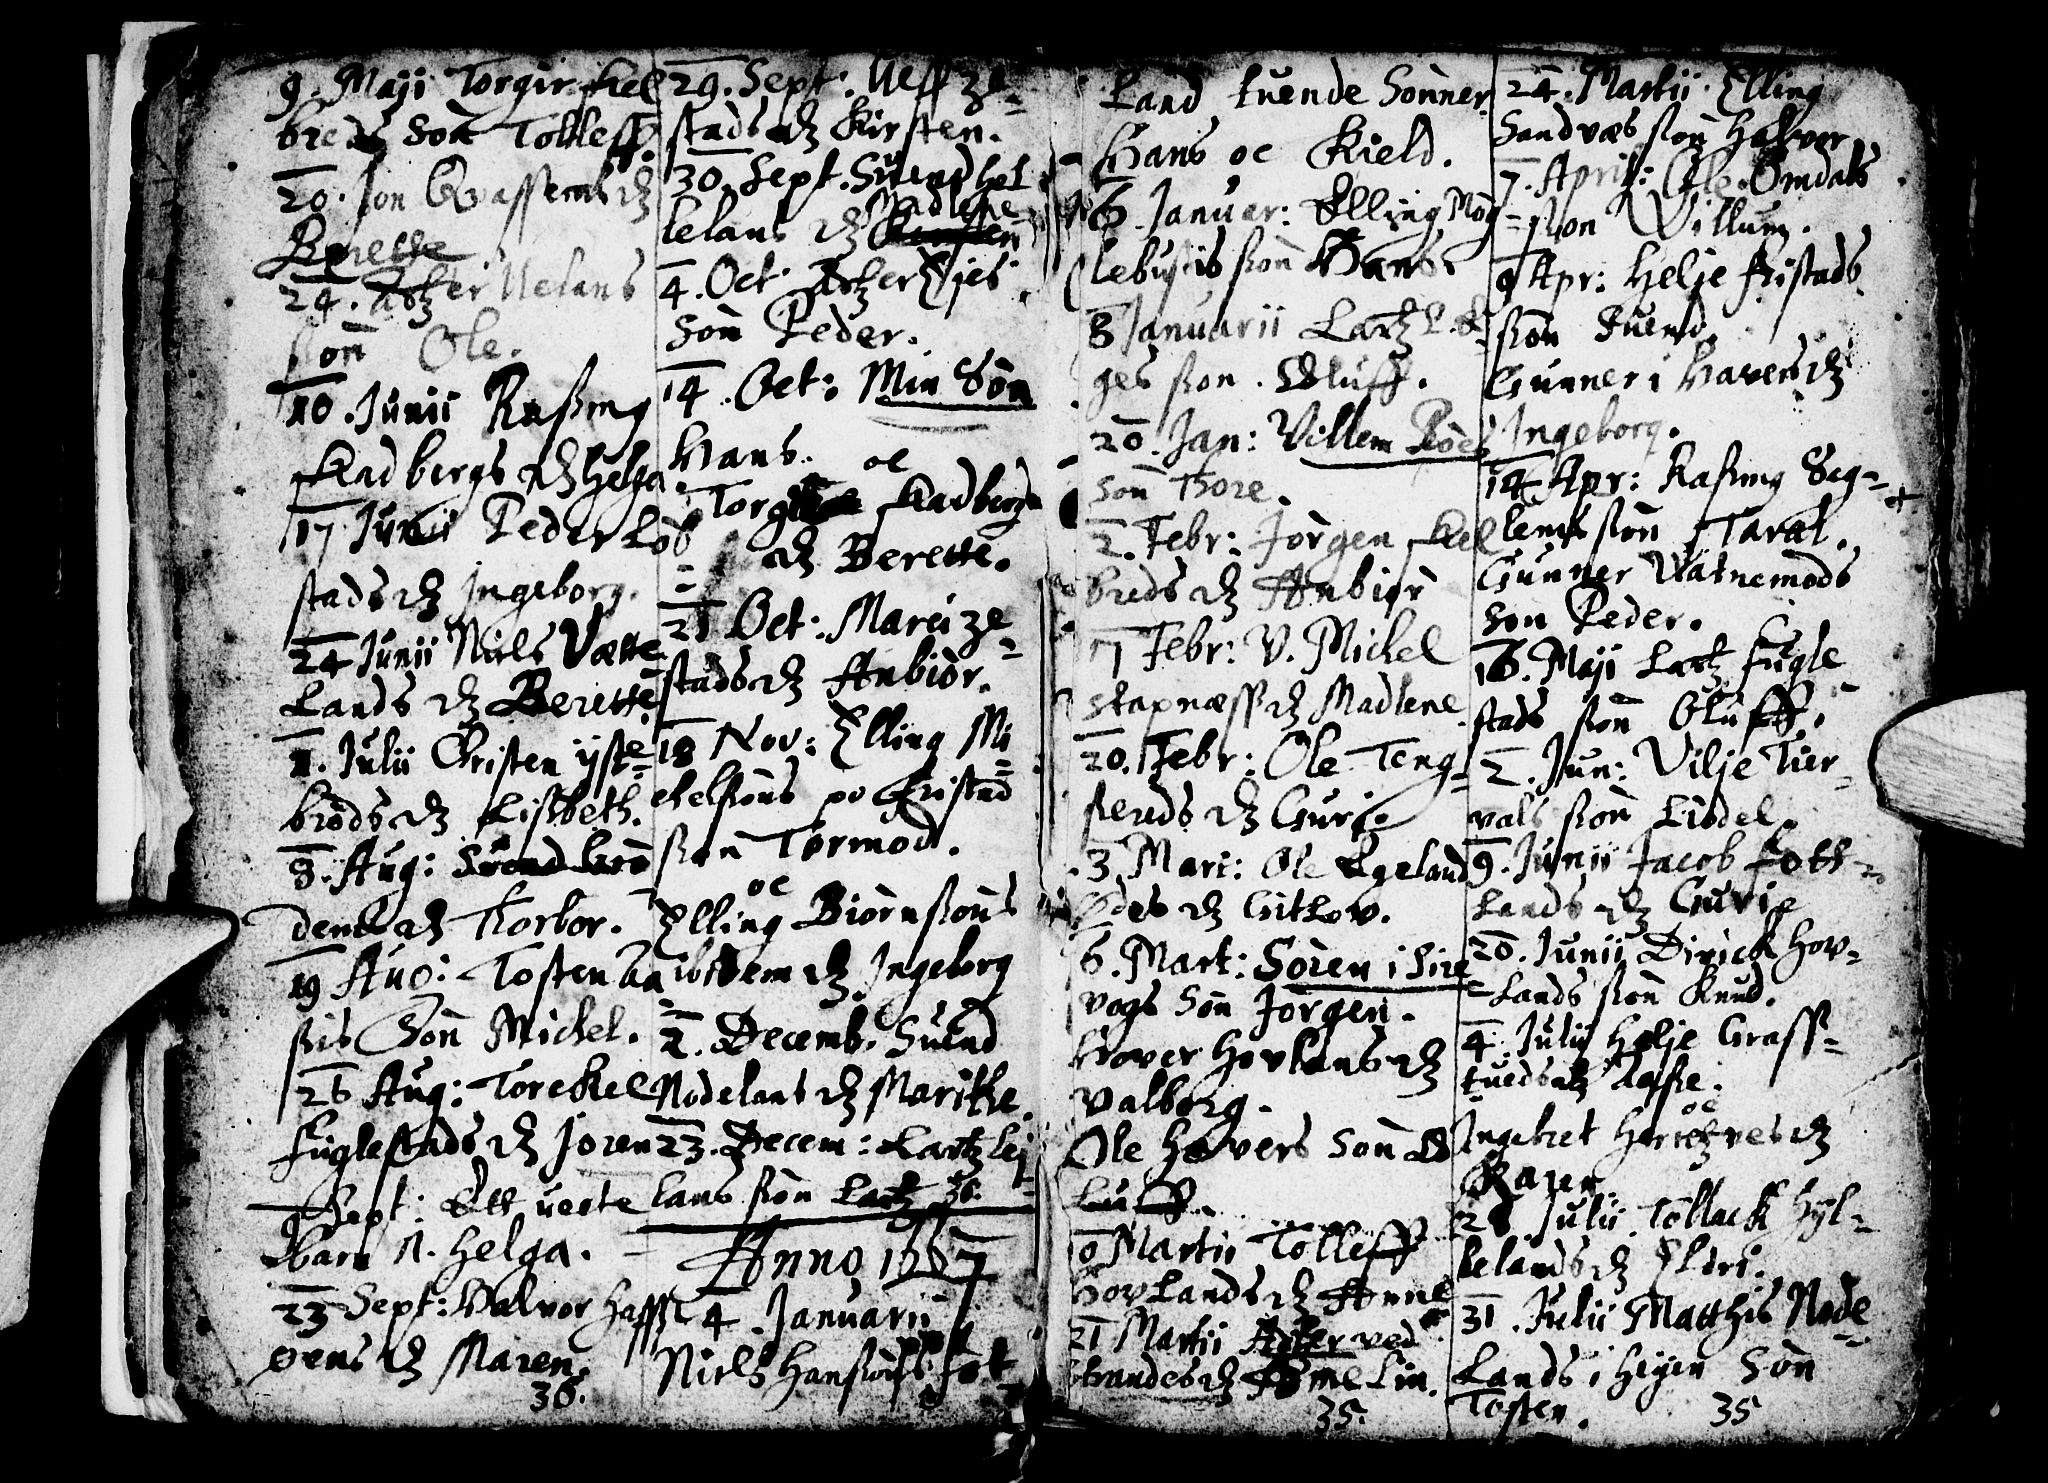 9. Maji Torgir Kel
breds Son Tolleff.
20. Jon Qvassems dr
Berette
24. Atzer Uelans
søn Ole.
10. Junii Rasmg
Kadbergs dr Helga
17. Junii Peder Løb
stads dr Ingeborg.
24 Junii Niels Vætte
Lands dr Berette
1. Julii Christen yste-
brøds dr Lisbeth.
8. Aug: Svend brø
dens dr Thorbor.
19 Aug: Tosten
Søn Michel.
26 Aug: Torekel
Fuglestads dr Joren
Sept: Ett uegte
barn n. Helga.
23 Sept: Halvor Haff
øens dr Maren.
36.
29. Sept: Ueff ze-
stads dr Kirsten.
30. Sept. Suend hel
lelans dr Madlene
4. Oct Atzer Ejes
Søn Peder.
14. Oct: Min Søn
Hans. oc
Kadberg
dr Berette.
21 Oct: Marci ze-
stads dr Anbiør.
18 Nov: Elling Mi
chelsøns po Fristad
søn Tormod.
oc
Elling Biørnsøns
dr Ingeborg
2. Decemb. Suend
Nodelans dr Marithe.
23. Decem: Lartz Lej
lans søn Lartz 36.
Anno 1667
4. Januarii
Niels Hansøns Føt
Land tuende Sønner
Hans oc Kield.
6. Januar: Elling Mog
lebustis søn Hans.
8 Januarii Lartz
ges søn. Oluff.
20. Jan: Villem Røes
søn Thore.
2. Febr: Jørgen Kel
breds dr Anbiør
17 Febr: V. Michel
stapnæss dr Madlene.
20. Febr: Ole Teng-
sereds dr Guri.
3 Mart: Ole Egeland
des dr Gitlov.
6. Mart: Søren i Sire
vogs Søn Jørgen.
Hover Hovlans dr
Valborg.
Ole Høvers Søn O
Luff.
10 Martii Tølleff
Hovlands dr Anne
21 Martii Atzer ved
Strandes dr Anne Lin.
35.
24. Martii Elling
Sandvæs søn Halvor
7. April: Ole Omdals
søn Villum.
9 Apr: Helje Fristads
søn Suend.
Gunner i Havens dr
Ingeborg.
14 Apr: Rasmg Seg-
lems søn Taral.
Gunner Vatnemods
Son Peder.
16. Maji Lartz Fugle
stads søn Oluff.
2. Jun: Vilje Tier-
vals søn Lisdel.
9. Junii Jacob Fott-
Lands dr Gurie
20. Junii Dirick Hov-
Lands søn Knud.
4. Julii Helje Graff-
tueds dr Aasse.
oc
Ingebret dr
Karen
28 Julii Tollack Hyl-
lelands dr Eldri.
31. Julii Matthis Node
Lands i Hejen Søn
Tosten.
35